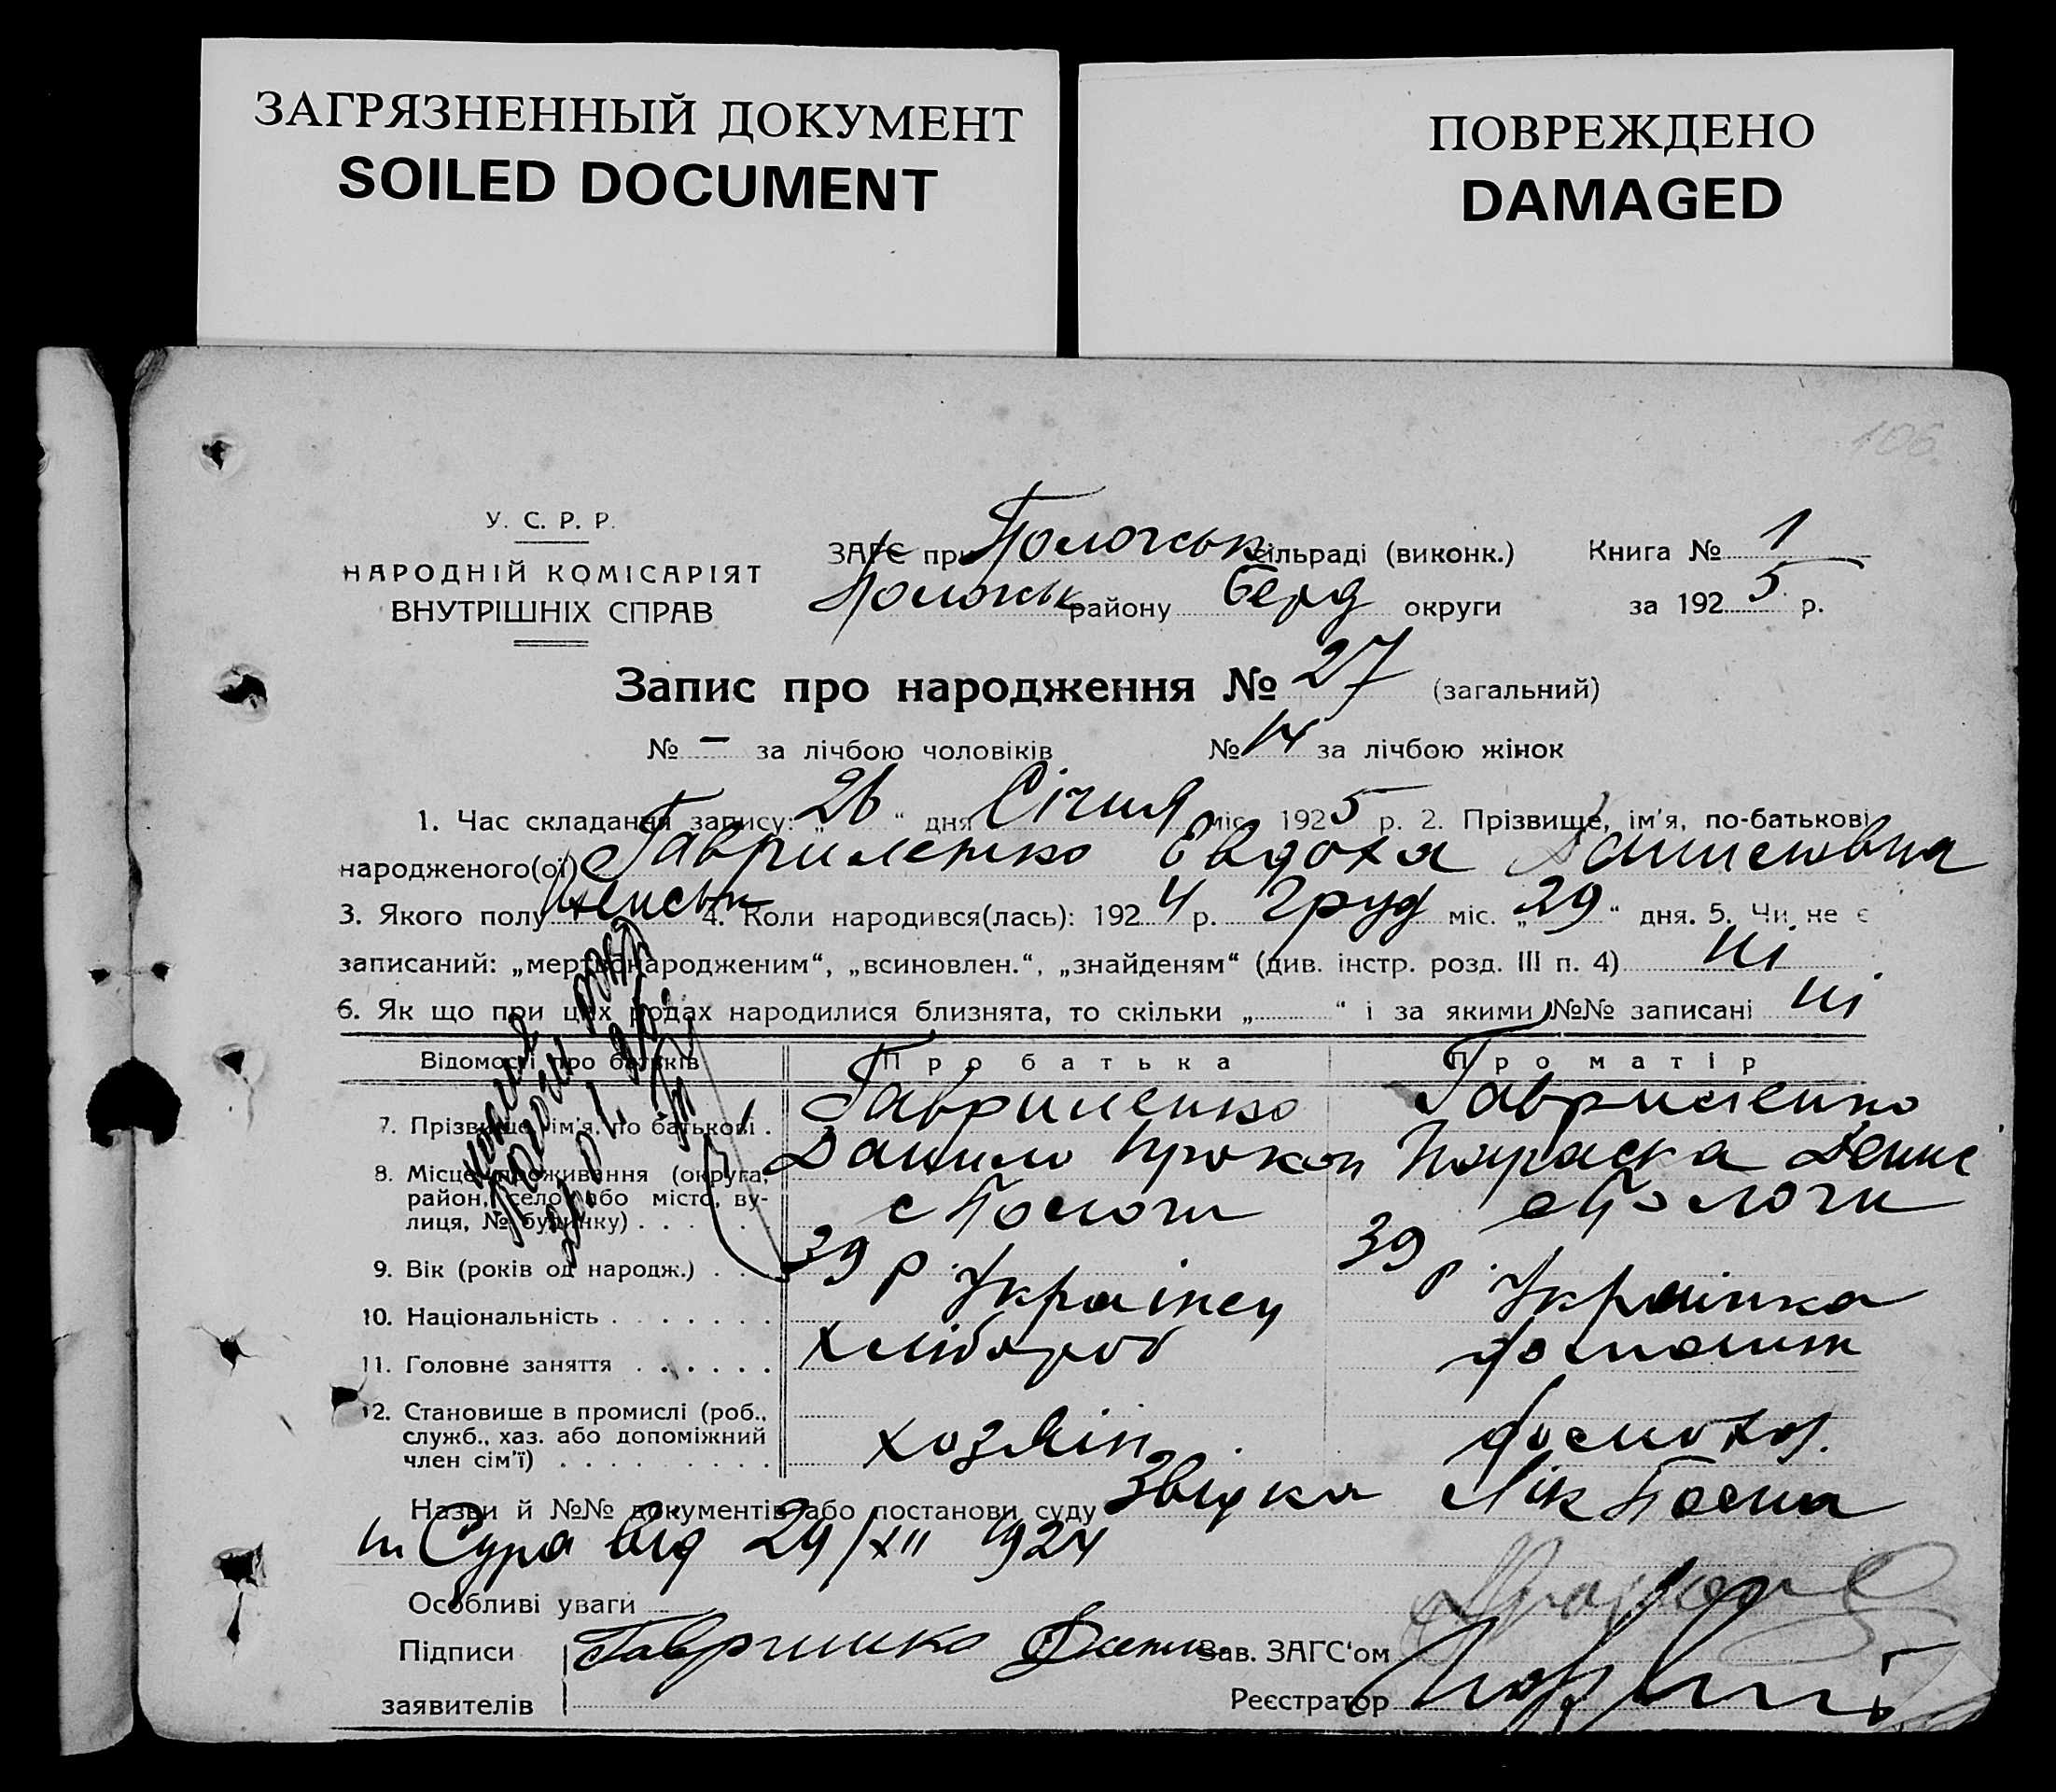 ЗАГРЯЗНЕННЫЙ ДОКУМЕНТ
SOILED DOCUMENT
ПОВРЕЖДЕНО
DAMAGED
106.
У. С. Р. Р.
НАРОДНІЙ КОМІСАРІЯТ
ВНУТРІШНІХ СПРАВ
ЗАГС при Пологськ сільраді (виконк.) Книга № 1
Пологськ району Берд округи за 1925 р.
Запис про народження № 27 (загальний)
№ – за лічбою чоловіків № 14 за лічбою жінок
1. Час складання запису: „26“ дня Січня міс. 1925 р. 2. Прізвище, ім'я, по-батькові
народженого(ої) Гавриленко Євдоха Даниловна
3. Якого полу женськ 4. Коли народився(лась): 1924 р. Груд міс. „29“ дня. 5. Чи не є
записаний: „мертвонародженим“, „всиновлен.“, „знайденям“ (див. інстр. розд. III п. 4) ні
6. Як що при цих родах народилися близнята, то скільки „ “ і за якими №№ записані ні
Відомості про батьків Про батька Про матір
7. Прізвище, ім'я, по батькові . Гавриленко Гавриленко
Данило Прокоп Параска Денис
8. Місце проживання (округа,
район, село або місто, ву-
лиця, № будинку) . . . . с Пологи с Пологи
9. Вік (років од народж.) . . . 39 р. 39 р.
10. Національність . . . . . . . Українец Українка
11. Головне заняття . . . . . . хлібороб
12. Становище в промислі (роб.,
служб., хаз. або допоміжний
член сім'ї) . . . . . . . . . хозяін
Назви й №№ документів або постанови суду Звідка Лік
від 29/XII 1924
Особливі уваги
Підписи Зав. ЗАГС'ом
заявителів Реєстратор